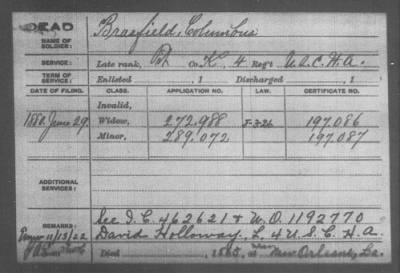 DEAD
NAME OF SOLDIER: Brasfield, Columbus
SERVICE: Late rank, Pt Co. K, 4 Reg't U.S.C.H.A.
TERM OF SERVICE: Enlisted , 1 Discharged , 1
DATE OF FILING. CLASS. APPLICATION NO. LAW. CERTIFICATE NO.
Invalid,
1880, June 29. Widow, 272.988 197.086
Minor, 289.072 197.087
ADDITIONAL SERVICES:
See I.C. 462621 & W.O. 1192770
REMARKS: David Holloway, L, 4 U.S.C.H.A.
11/13/22
Died , 1865, New Orleans, La.